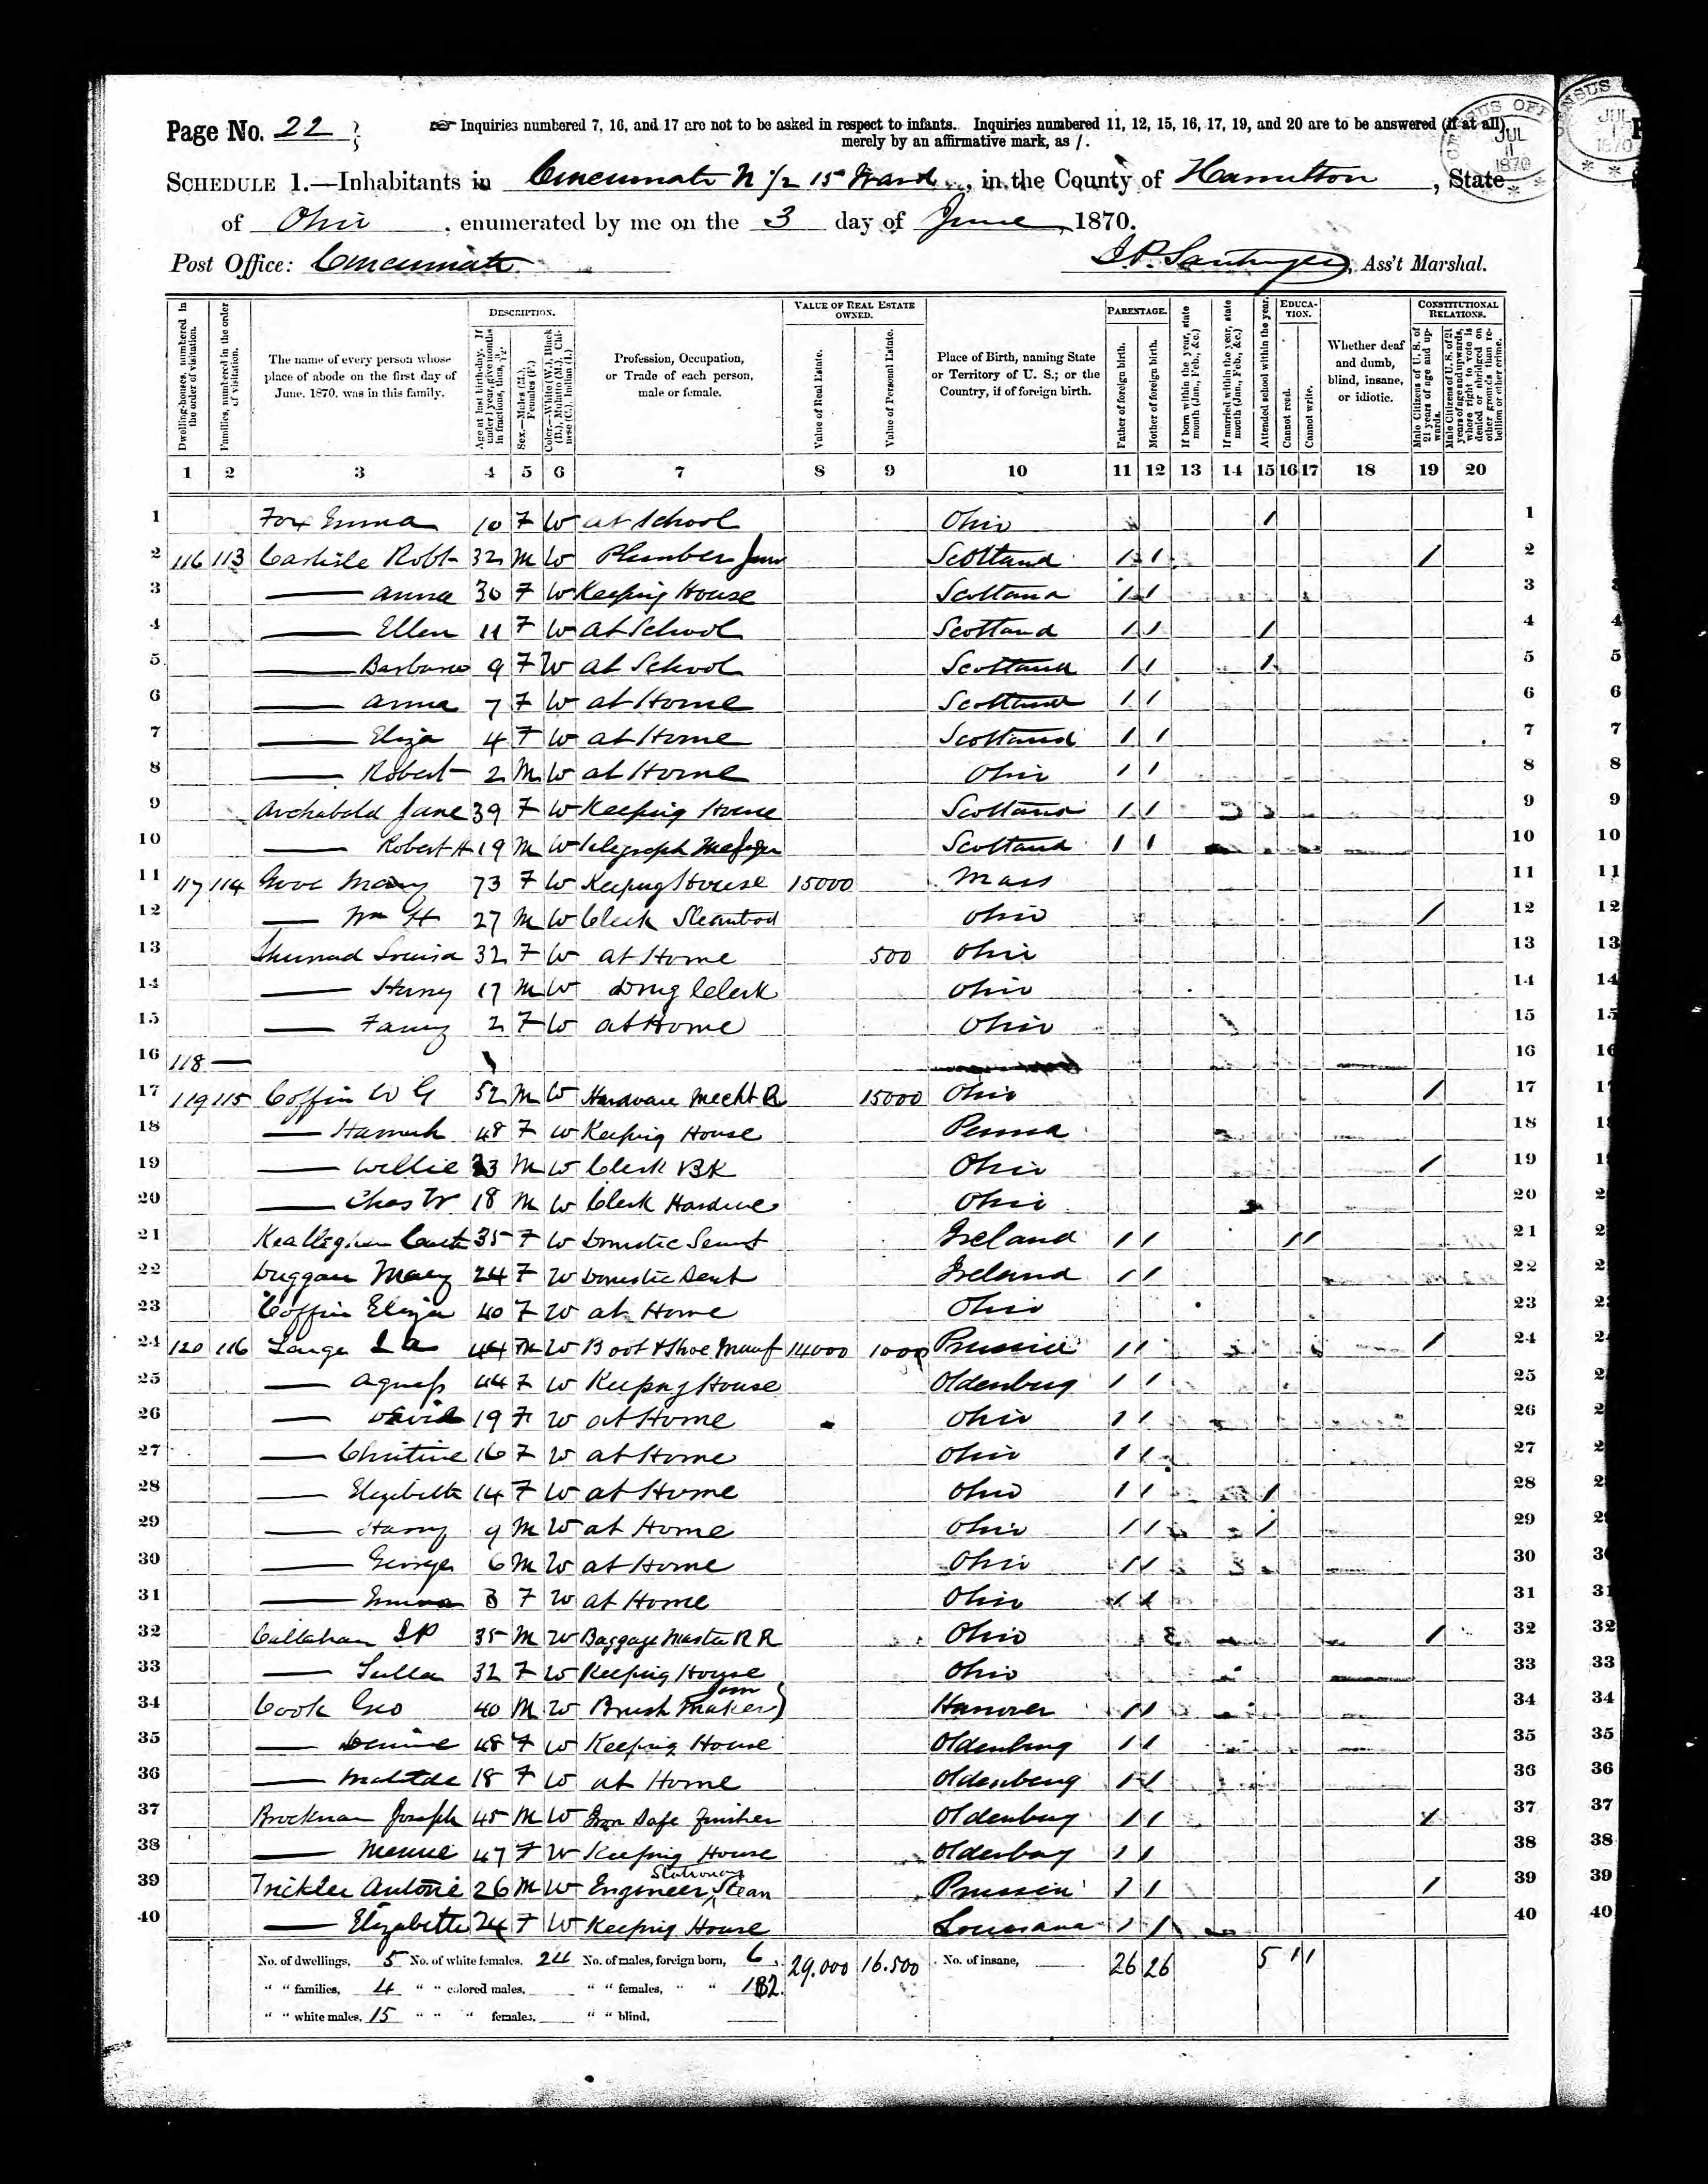 Page No. 22
Inquiries numbered 7, 16, and 17 are not to be asked in respect to infants. Inquiries numbered 11, 12, 15, 16, 17, 19, and 20 are to be answered (if at all)
merely by an affirmative mark, as /.
JUL 11 1870
SCHEDULE 1.—Inhabitants in Cincinnati N 1/2 15 Ward, in the County of Hamilton, State
of Ohio, enumerated by me on the 3 day of June, 1870.
Post Office: Cincinnati
Ass't Marshal.
Dwelling-houses, numbered in the order of visitation.
Families, numbered in the order of visitation.
The name of every person whose place of abode on the first day of June, 1870, was in this family.
DESCRIPTION.
Age at last birth-day. If under 1 year, give months in fractions, thus, 3/12.
Sex.—Males (M.), Females (F.)
Color.—White (W.), Black (B.), Mulatto (M.), Chinese (C.), Indian (I.)
Profession, Occupation, or Trade of each person, male or female.
VALUE OF REAL ESTATE OWNED.
Value of Real Estate.
Value of Personal Estate.
Place of Birth, naming State or Territory of U. S.; or the Country, if of foreign birth.
PARENTAGE.
Father of foreign birth.
Mother of foreign birth.
If born within the year, state month (Jan., Feb., &c.)
If married within the year, state month (Jan., Feb., &c.)
Attended school within the year.
EDUCATION.
Cannot read.
Cannot write.
Whether deaf and dumb, blind, insane, or idiotic.
CONSTITUTIONAL RELATIONS.
Male Citizens of U. S. of 21 years of age and upwards.
Male Citizens of U. S. of 21 years of age and upwards, whose right to vote is denied or abridged on other grounds than rebellion or other crime.
1 2 3 4 5 6 7 8 9 10 11 12 13 14 15 16 17 18 19 20
1 Fox Emma 10 F W at School Ohio / 1
2 116 113 Carlisle Robt 32 M W Plumber Scotland / / / 2
3 — Anna 30 F W Keeping House Scotland / / 3
4 — Ellen 11 F W at School Scotland / / / 4
5 — Barbara 9 F W at School Scotland / / / 5
6 — Anna 7 F W at Home Scotland / / 6
7 — Eliza 4 F W at Home Scotland / / 7
8 — Robert 2 M W at Home Ohio / / 8
9 Archabald Jane 39 F W Keeping House Scotland / / 9
10 — Robert H 19 M W Telegraph Scotland / / 10
11 117 114 Mary 73 F W Keeping House 15000 Mass 11
12 — Wm H 27 M W Clerk Steamboat Ohio / 12
13 Louisa 32 F W at Home 500 Ohio 13
14 — Harry 17 M W Drug Clerk Ohio 14
15 — Fanny 2 F W at Home Ohio 15
16 118 — 16
17 119 115 Coffin W G 52 M W Hardware Mecht R 15000 Ohio / 17
18 — Hannah 48 F W Keeping House Penna 18
19 — Willie 23 M W Clerk BK Ohio / 19
20 — Chas W 18 M W Clerk Hardware Ohio 20
21 35 F W Domestic Servt Ireland / / / / 21
22 Duggan Mary 24 F W Domestic Servt Ireland / / 22
23 Coffin Eliza 40 F W at Home Ohio 23
24 120 116 Lange 44 M W Boot & Shoe Manuf 14000 1000 Prussia / / / 24
25 — Agness 44 F W Keeping House Oldenburg / / 25
26 — 19 F W at Home Ohio / / 26
27 — Christine 16 F W at Home Ohio / / 27
28 — Elizabeth 14 F W at Home Ohio / / / 28
29 — Harry 9 M W at Home Ohio / / / 29
30 — George 6 M W at Home Ohio / / 30
31 — Emma 3 F W at Home Ohio / / 31
32 Callahan 35 M W Baggage Master RR Ohio / 32
33 — 32 F W Keeping House Ohio 33
34 Cook Geo 40 M W Brush Maker Hanover / / 34
35 — 48 F W Keeping House Oldenburg / / 35
36 — Matilda 18 F W at Home Oldenburg / / 36
37 Brockman Joseph 45 M W Iron Safe Finisher Oldenburg / / / 37
38 — Mennie 47 F W Keeping House Oldenburg / / 38
39 Trickler Antone 26 M W Engineer Stationary Steam Prussia / / / 39
40 — Elizabeth 24 F W Keeping House Louisana / / 40
No. of dwellings, 5 No. of white females, 24 No. of males, foreign born, 6 29.000 16.500 No. of insane, 26 26 5 1 1
" " families, 4 " " colored males, " " females, " "
" " white males, 15 " " " females, " " blind,